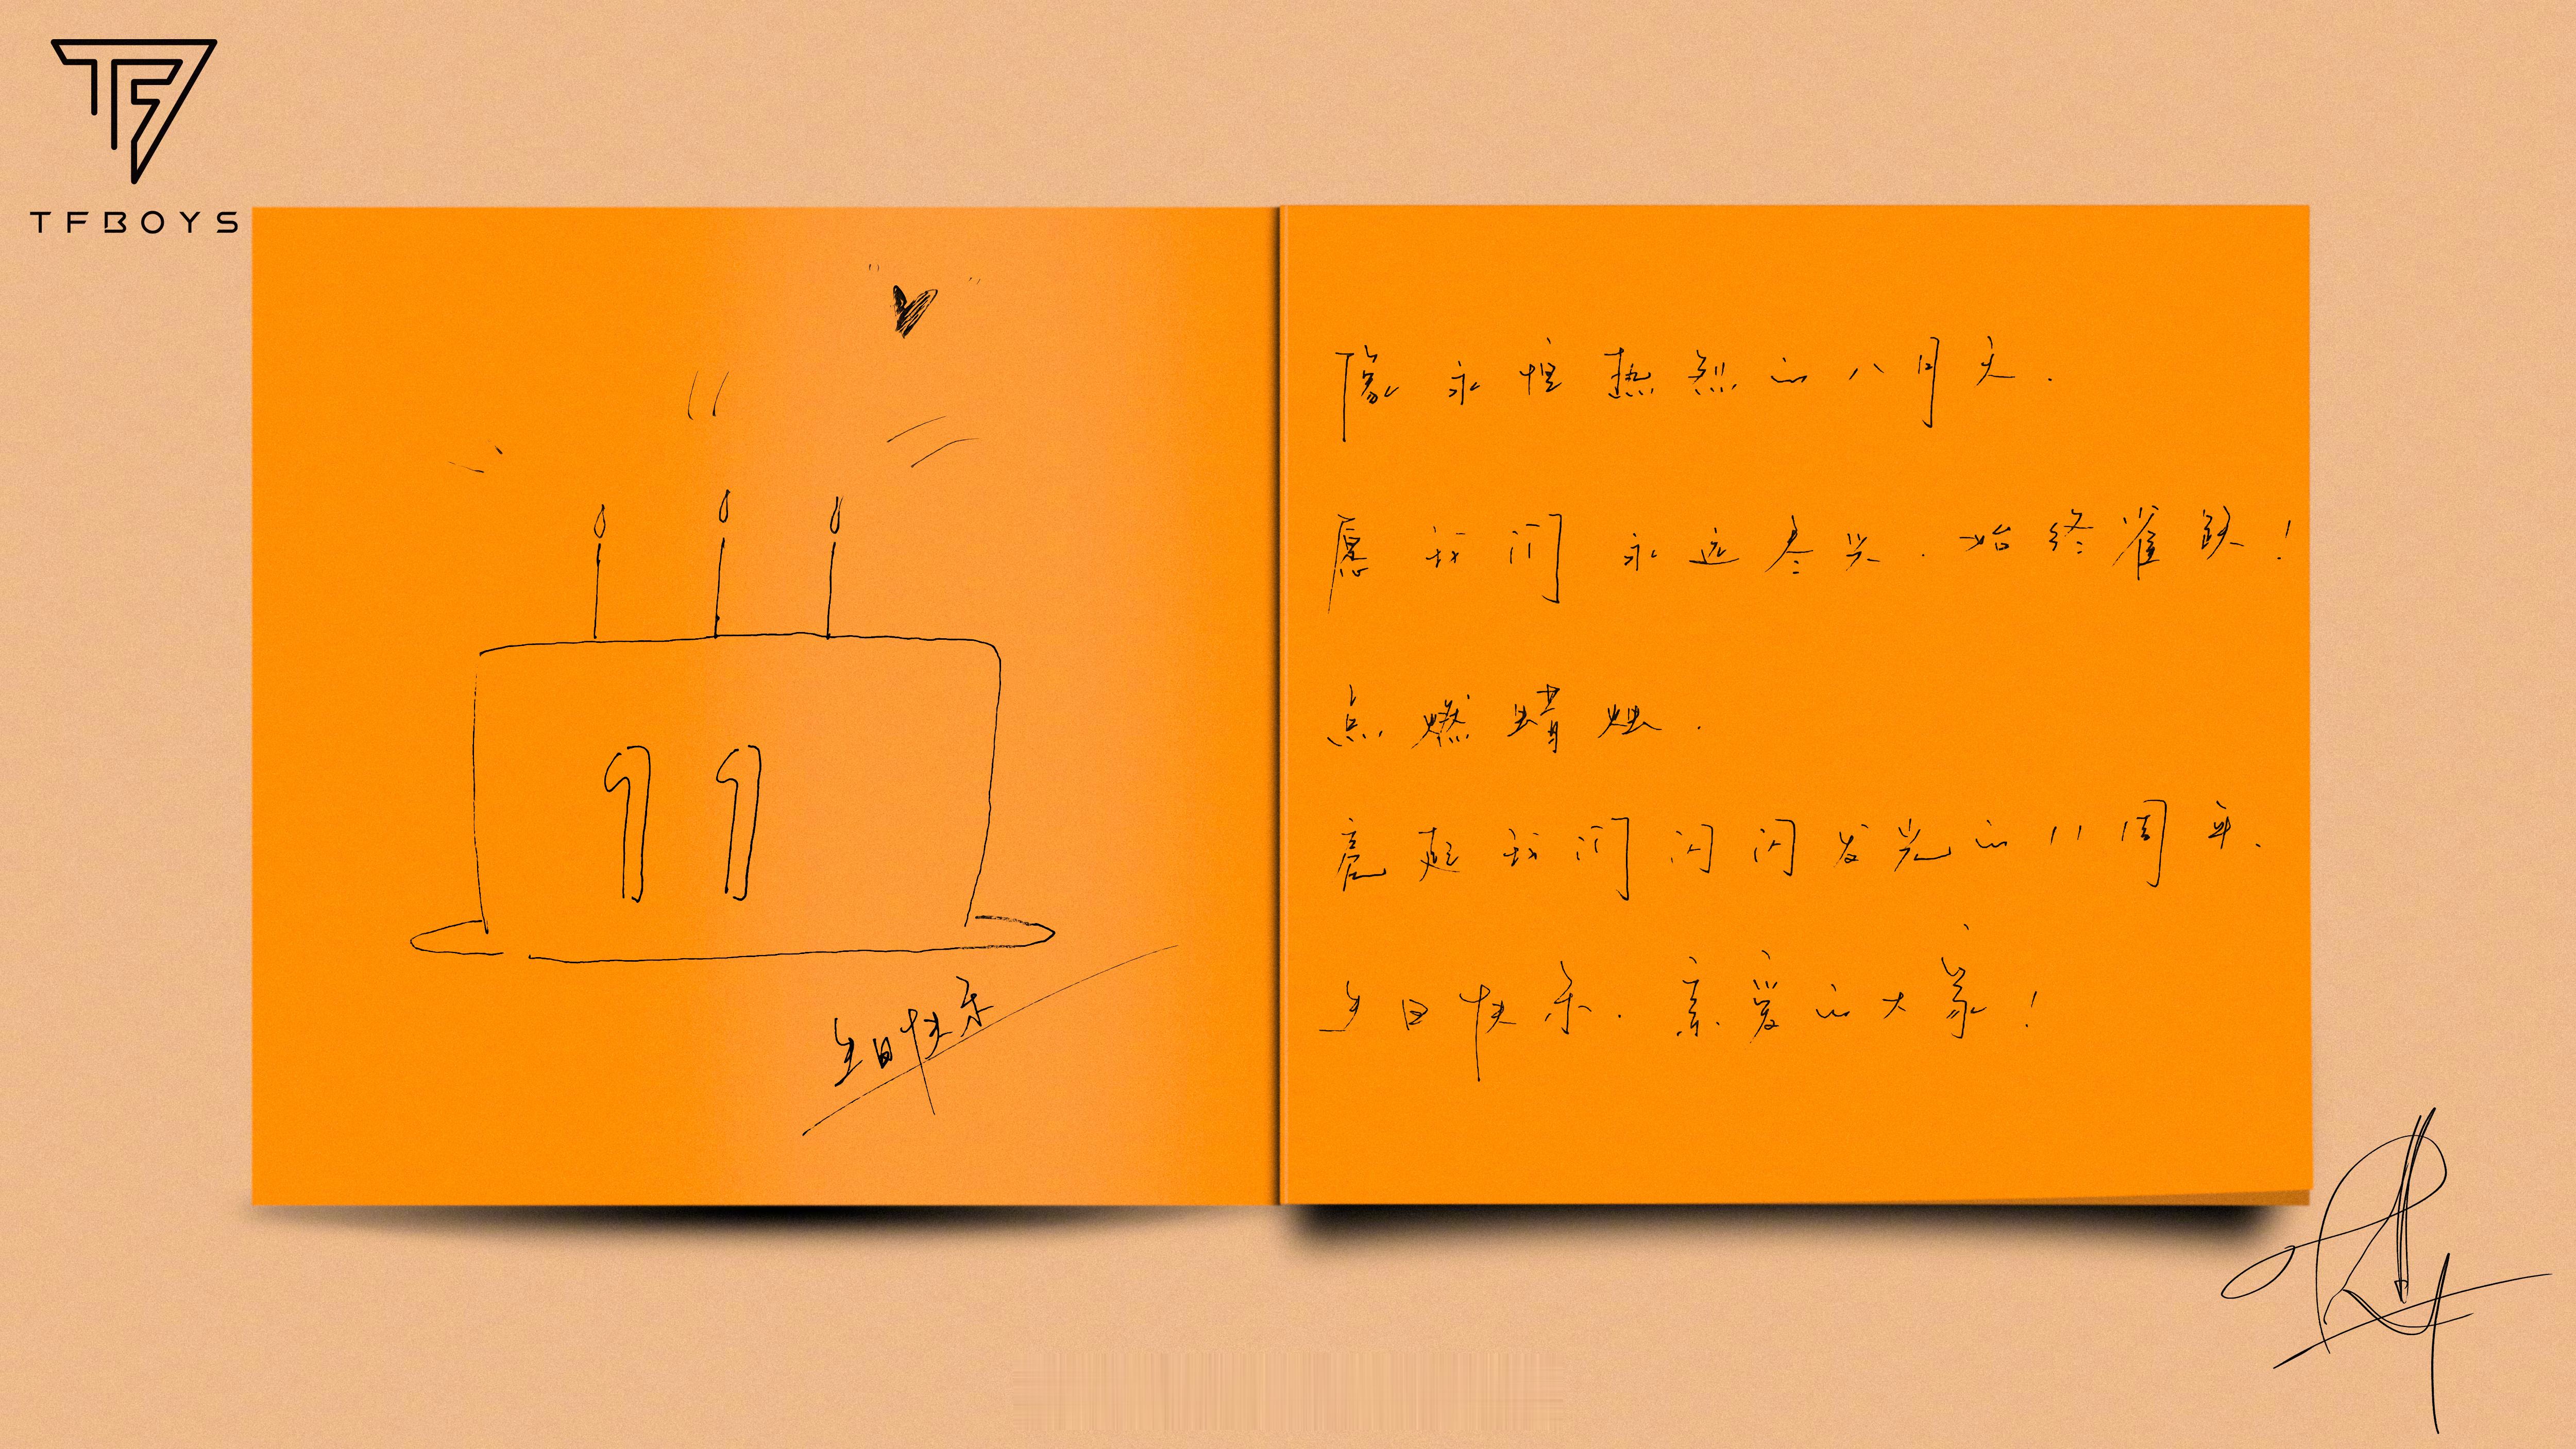 TFBOYS
11
生日快乐
像永恒热烈的八月天.
愿我们永远尽兴.始终雀跃!
点燃蜡烛.
亮起我们闪闪发光的11周年.
生日快乐.亲爱的大家!